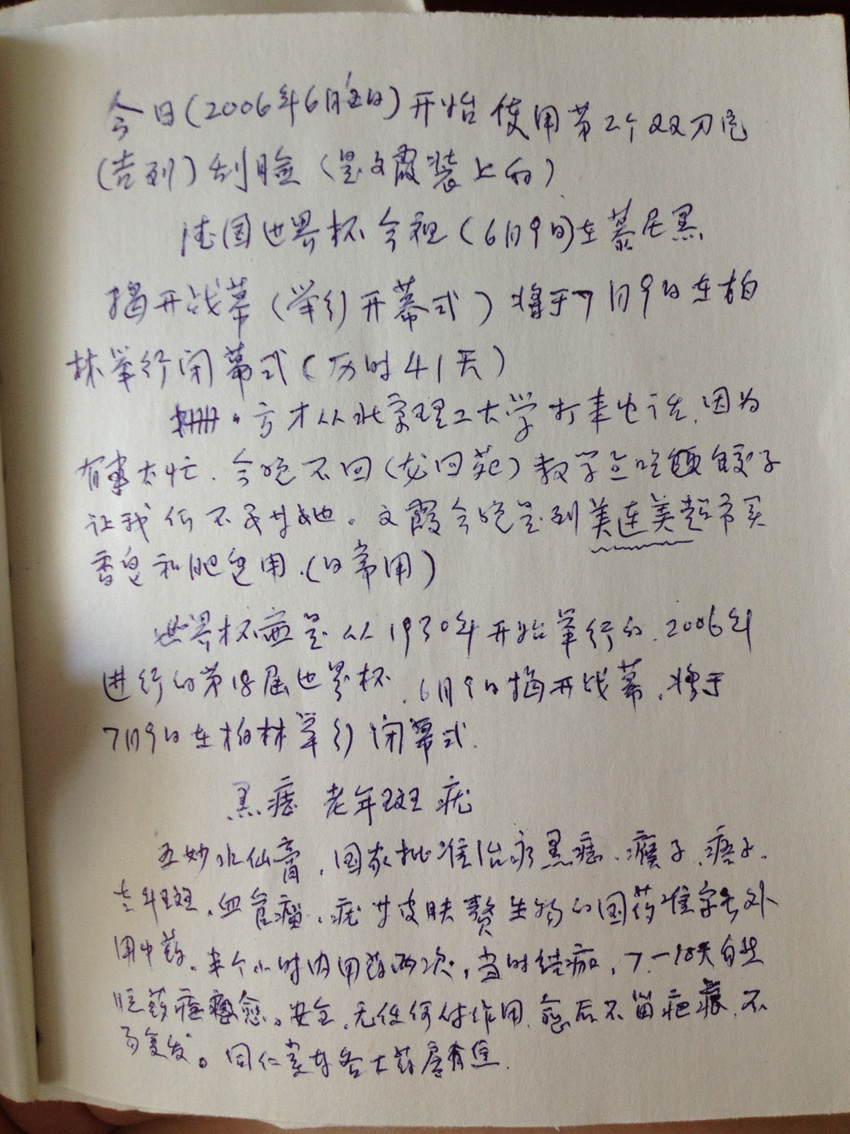 今日(2006年6月 日)开始使用第2个双刀
(吉列)刮脸(是文霞装上的)
德国世界杯今 (6月9日)在慕尼黑
揭开战幕(举行开幕式)将于7月9日在柏
林举行闭幕式(历时41天)
姗。方才从北京理工大学打来电话,因为
有事太忙.今晚不回(龙回苑) 吃 饺子
让我们不 等她。文霞今晚是到美连美超市买
香皂和肥皂用.(日常用)
世界杯 是从1930年开始举行的.2006年
进行的第18届世界杯.6月9日揭开战幕,将于
7月9日在柏林举行闭幕式.
黑痣 老年斑 疣
五妙水仙膏,国家批准治疗黑痣.瘊子.痦子.
老年斑.血管瘤.疣等皮肤赘生物的国药准字号外
用中药.半个小时内用药两次,当时结痂,7.—10天自然
脱 痊愈。安全.无任何付作用.愈后不留疤痕.不
易复发。同仁堂等各大药房有售.